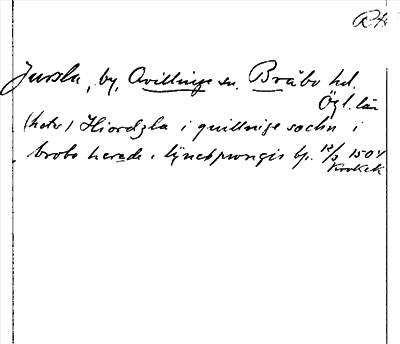 RA
Jursla, by, Qvillinge sn. Bråbo hd.
Ögl. län
(hete) Hiordzla i quillinge sochn i
brobo herade i lyncöpungis bp. 12/3 1504
Krokek